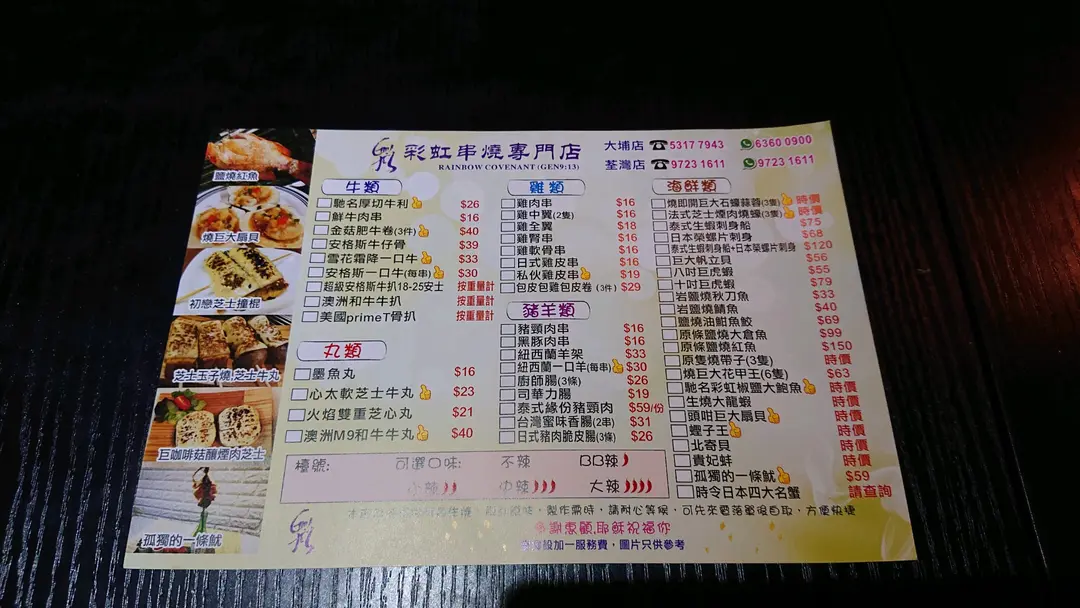 彩虹串燒專門店
RAINBOW COVENANT (GEN9:13)
大埔店 5317 7943 6360 0900
荃灣店 9723 1611 9723 1611
鹽燒紅魚
燒巨大扇貝
初戀芝士撞棍
芝士玉子燒,芝士牛丸
巨咖啡菇釀煙肉芝士
孤獨的一條魷
牛類
馳名厚切牛利 $26
鮮牛肉串 $16
金菇肥牛卷(3件) $40
安格斯牛仔骨 $39
雪花霜降一口牛 $33
安格斯一口牛(每串) $30
超級安格斯牛扒18-25安士 按重量計
澳洲和牛牛扒 按重量計
美國primeT骨扒 按重量計
丸類
墨魚丸 $16
心太軟芝士牛丸 $23
火焰雙重芝心丸 $21
澳洲M9和牛牛丸 $40
雞類
雞肉串 $16
雞中翼(2隻) $16
雞全翼 $18
雞腎串 $16
雞軟骨串 $16
日式雞皮串 $16
私伙雞皮串 $19
包皮包雞包皮卷(3件) $29
豬羊類
豬頸肉串 $16
黑豚肉串 $16
紐西蘭羊架 $33
紐西蘭一口羊(每串) $30
廚師腸(3條) $26
司華力腸 $19
泰式緣份豬頸肉 $59/份
台灣蜜味香腸(2串) $31
日式豬肉脆皮腸(3條) $26
海鮮類
燒即開巨大石蠔蒜蓉(3隻) 時價
法式芝士煙肉燒蠔(3隻) 時價
泰式生蝦刺身船 $75
日本榮螺片刺身 $68
泰式生蝦刺身船+日本榮螺片刺身 $120
巨大帆立貝 $56
八吋巨虎蝦 $55
十吋巨虎蝦 $79
岩鹽燒秋刀魚 $33
岩鹽燒鯖魚 $40
鹽燒油甘魚鮫 $69
原條鹽燒大倉魚 $99
原條鹽燒紅魚 $150
原隻燒帶子(3隻) 時價
燒巨大花甲王(6隻) $63
馳名彩虹椒鹽大鮑魚 時價
生燒大龍蝦 時價
頭咁巨大扇貝 時價
蟶子王 時價
北寄貝 時價
貴妃蚌 時價
孤獨的一條魷 $59
時令日本四大名蟹 請查詢
檯號: 可選口味: 不辣 BB辣
小辣 中辣 大辣
製作需時,請耐心等候,可先來電落單後自取,方便快捷
多謝惠顧,耶穌祝福你
設加一服務費,圖片只供參考